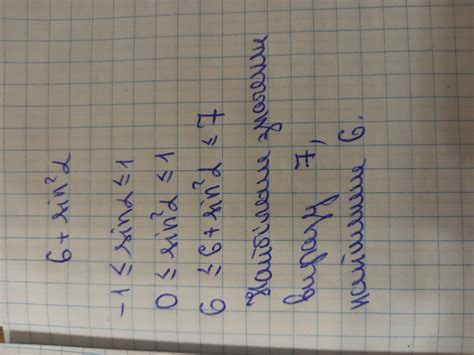 6 + sin²α
-1 ≤ sinα ≤ 1
0 ≤ sin²α ≤ 1
6 ≤ 6 + sin²α ≤ 7
Найбільше значення
виразу 7,
найменше 6.